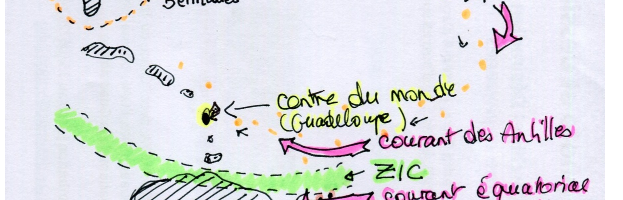 Bermudes
contre du monde
(Guadeloupe)
courant des Antilles
ZIC
courant équatorial